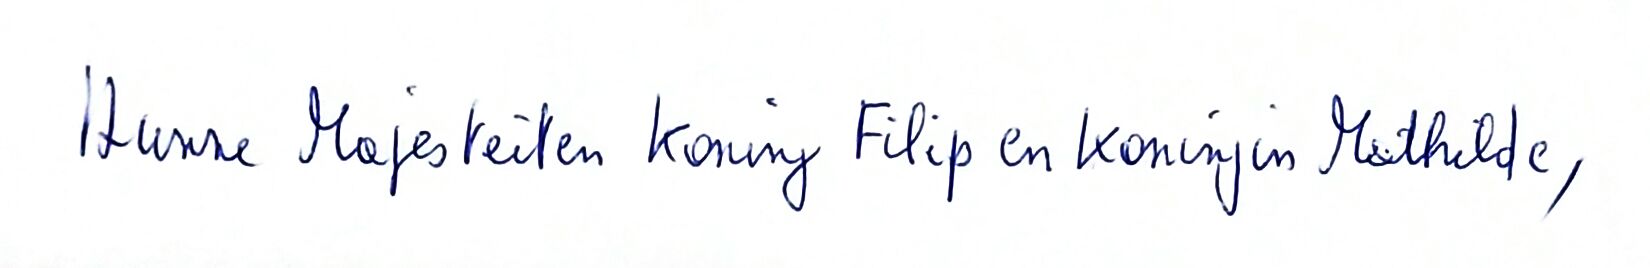 Hunne Majesteiten Koning Filip en Koningin Mathilde,